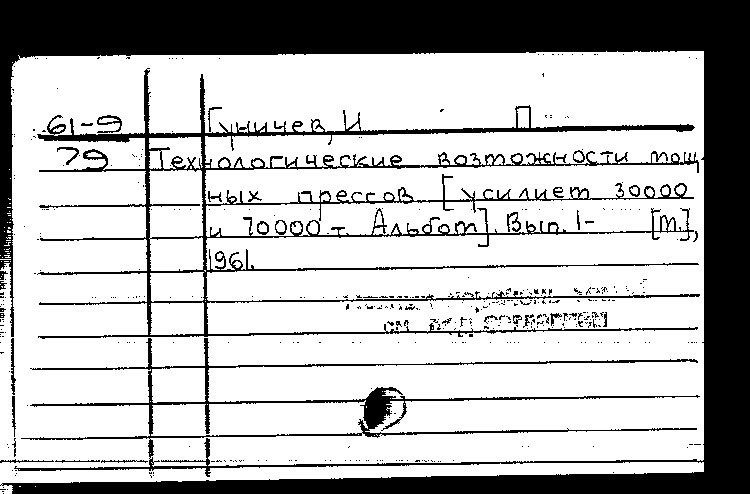 61-9 Гуничев, И П
79 Технологические возможности мощ-
ных прессов [усилием 30000
и 70000 т. Альбом]. Вып. 1- [М.],
1961.
см. под